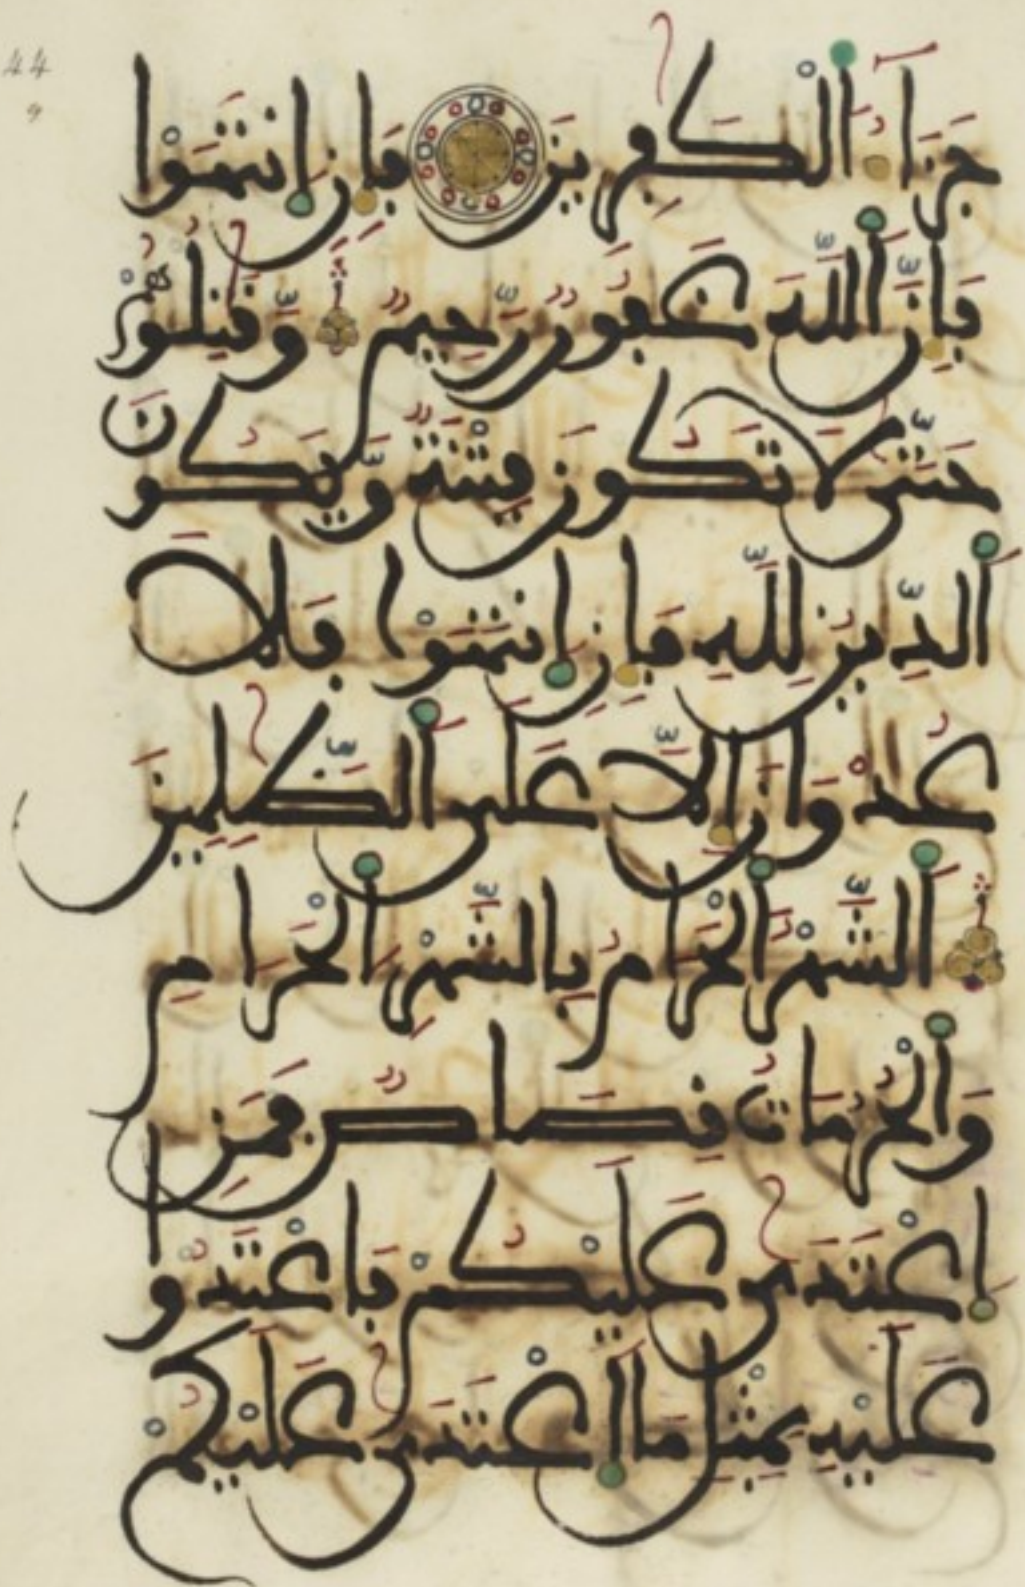 44
9
جَزَآءُ اُ۬لْكٰفِرِينَ فَإِنِ اِ۪نتَهَوْا
فَإِنَّ اَ۬للَّهَ غَفُورٌ رَّحِيمٌ وَّقَٰتِلُوهُمْ
حَتَّىٰ لَا تَكُونَ فِتْنَةٌ وَّيَكُونَ
اَ۬لدِّينُ لِلَّهِ فَإِنِ اِ۪نتَهَوْا فَلَا
عُدْوَٰنَ إِلَّا عَلَى اَ۬لظَّٰلِمِينَ
اَ۬لشَّهْرُ اُ۬لْحَرَامُ بِالشَّهْرِ اِ۬لْحَرَامِ
وَالْحُرُمَاتُ قِصَاصٌ فَمَنِ
اِ۪عْتَدَىٰ عَلَيْكُمْ فَاعْتَدُو
عَلَيْهِ بِمِثْلِ مَا اَ۪عْتَدَىٰ عَلَيْكُمْ